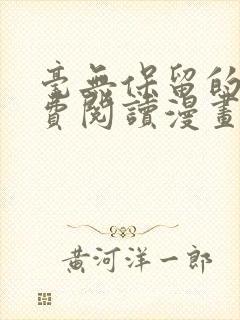 毫無保留的
費閱讀漫畫
黃河洋一郎